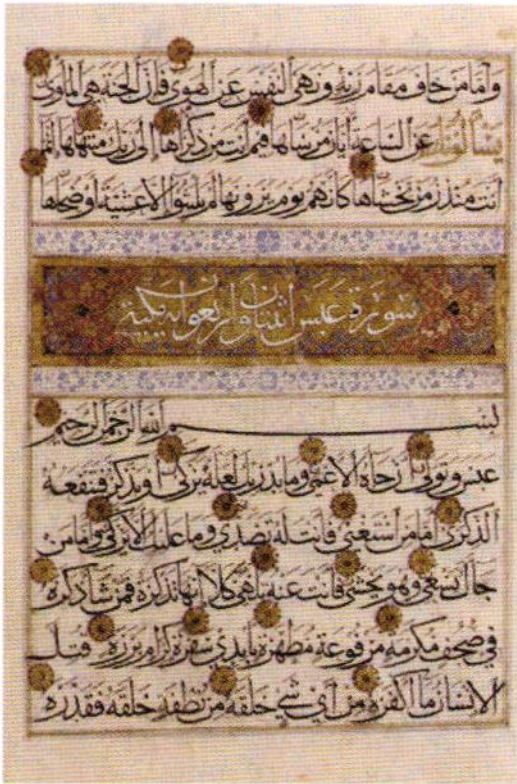 وَأَمَّا مَنْ خَافَ مَقَامَ رَبِّهِ وَنَهَى النَّفْسَ عَنِ الْهَوَى فَإِنَّ الْجَنَّةَ هِيَ الْمَأْوَى
يَسْأَلُونَكَ عَنِ السَّاعَةِ أَيَّانَ مُرْسَاهَا فِيمَ أَنْتَ مِنْ ذِكْرَاهَا إِلَى رَبِّكَ مُنْتَهَاهَا إِنَّمَا
أَنْتَ مُنْذِرُ مَنْ يَخْشَاهَا كَأَنَّهُمْ يَوْمَ يَرَوْنَهَا لَمْ يَلْبَثُوا إِلَّا عَشِيَّةً أَوْ ضُحَاهَا
سورة عبس اثنتان واربعون اية مكية
بِسْمِ اللهِ الرَّحْمَنِ الرَّحِيمِ
عَبَسَ وَتَوَلَّى أَنْ جَاءَهُ الْأَعْمَى وَمَا يُدْرِيكَ لَعَلَّهُ يَزَّكَّى أَوْ يَذَّكَّرُ فَتَنْفَعَهُ
الذِّكْرَى أَمَّا مَنِ اسْتَغْنَى فَأَنْتَ لَهُ تَصَدَّى وَمَا عَلَيْكَ أَلَّا يَزَّكَّى وَأَمَّا مَنْ
جَاءَكَ يَسْعَى وَهُوَ يَخْشَى فَأَنْتَ عَنْهُ تَلَهَّى كَلَّا إِنَّهَا تَذْكِرَةٌ فَمَنْ شَاءَ ذَكَرَهُ
فِي صُحُفٍ مُكَرَّمَةٍ مَرْفُوعَةٍ مُطَهَّرَةٍ بِأَيْدِي سَفَرَةٍ كِرَامٍ بَرَرَةٍ قُتِلَ
الْإِنْسَانُ مَا أَكْفَرَهُ مِنْ أَيِّ شَيْءٍ خَلَقَهُ مِنْ نُطْفَةٍ خَلَقَهُ فَقَدَّرَهُ